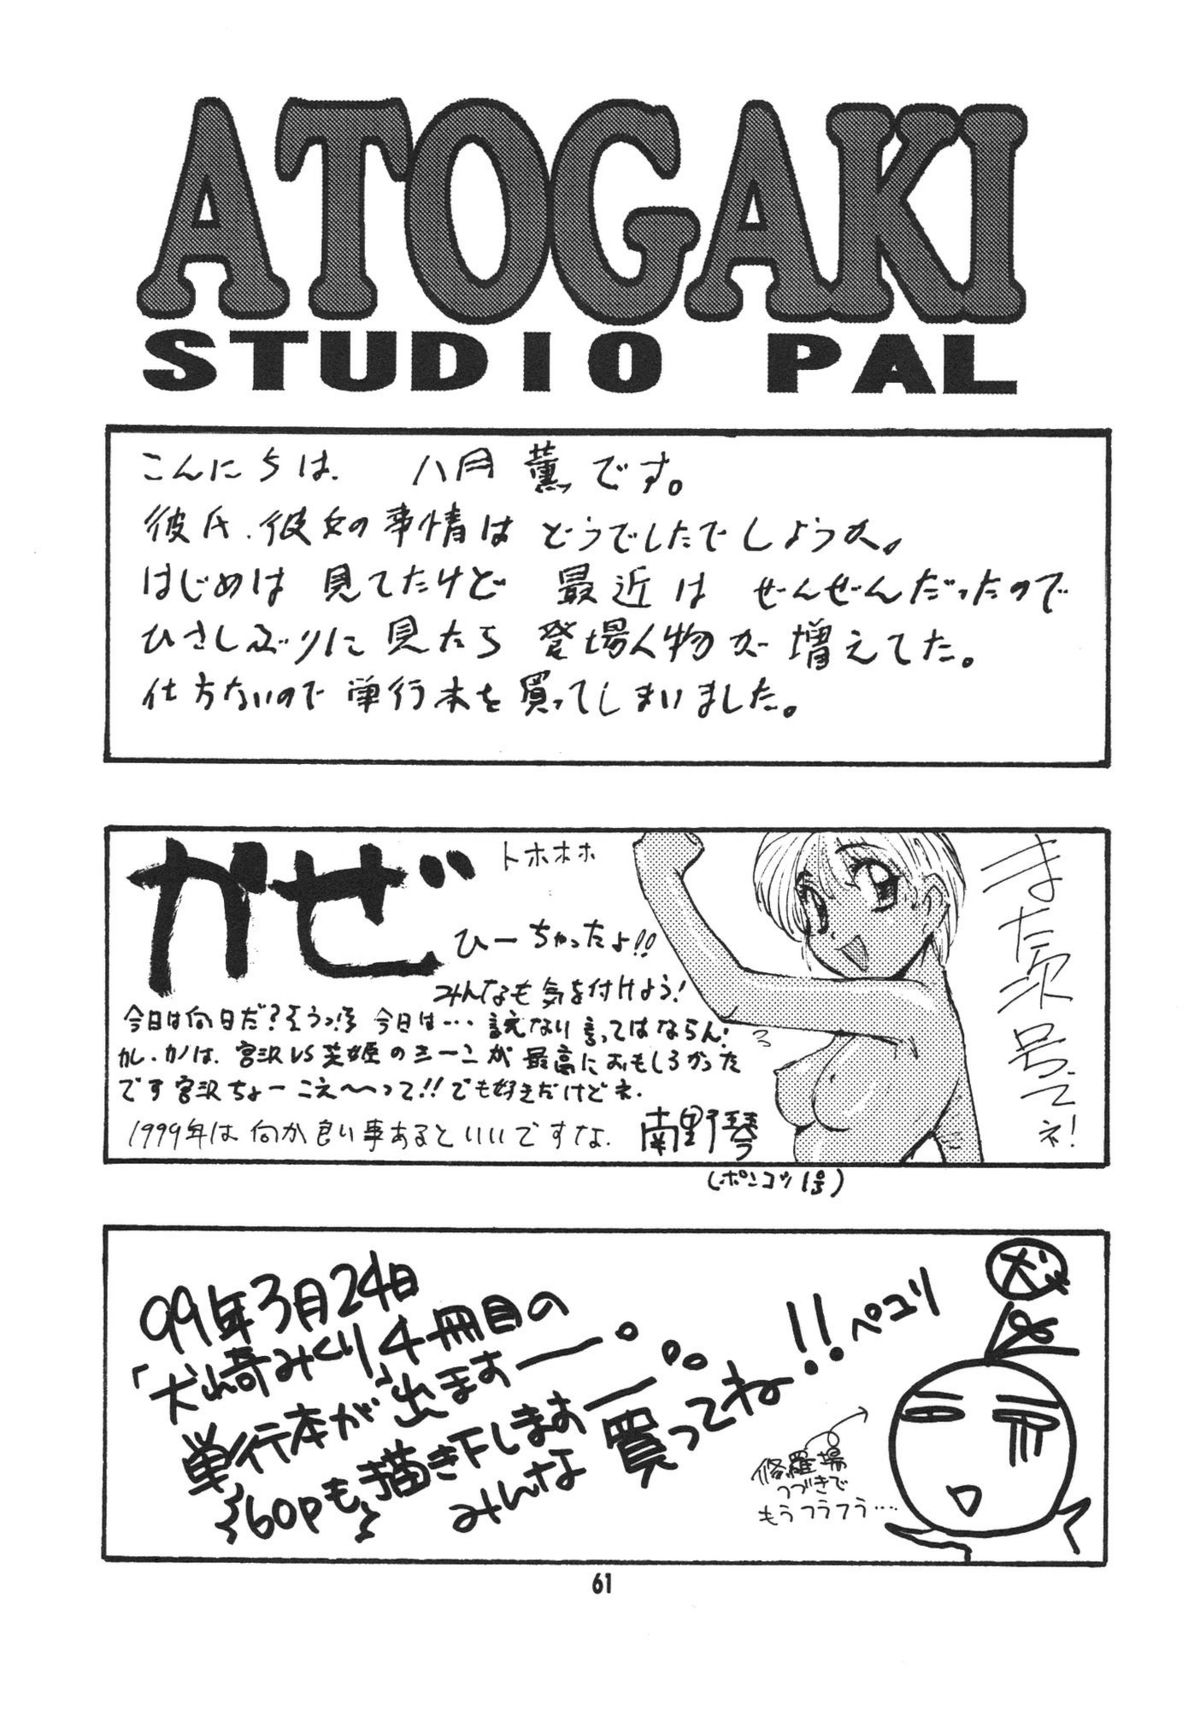 ATOGAKI
STUDIO PAL
こんにちは. 八月 薫です。
彼氏.彼女の事情は どうでしたでしょうか。
はじめは 見てたけど 最近は ぜんぜんだったので
ひさしぶりに 見たら 登場人物が 増えてた。
仕方ないので 単行本を 買ってしまいました。
かぜ
トホホホ
ひーちゃったよ!!
みんなも気を付けよう!
今日は何日だ? 今日は… 言ってはならん!
カレ.カノは. 宮沢VS英姫のシーンが 最高におもしろかった
です宮沢ちょーこえ〜〜って!!でも好きだけどネ.
1999年は何か良い事あるといいですな.
南野琴
(ポンコツ1号)
また次号でネ!
99年3月24日
「犬崎みくり」4冊目の
単行本が出ますー。
60pも描き下しますー。
みんな 買ってね!!ペコリ
犬
修羅場
つづきで
もうフラフラ….
61